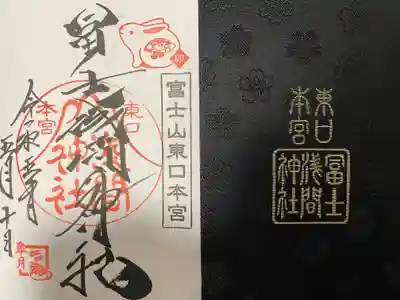 東口
本宮
冨士
浅間
神社
卯
富士山東口本宮
冨士浅間神社
東口
本宮
神社
令和五年
五月十日
皐月